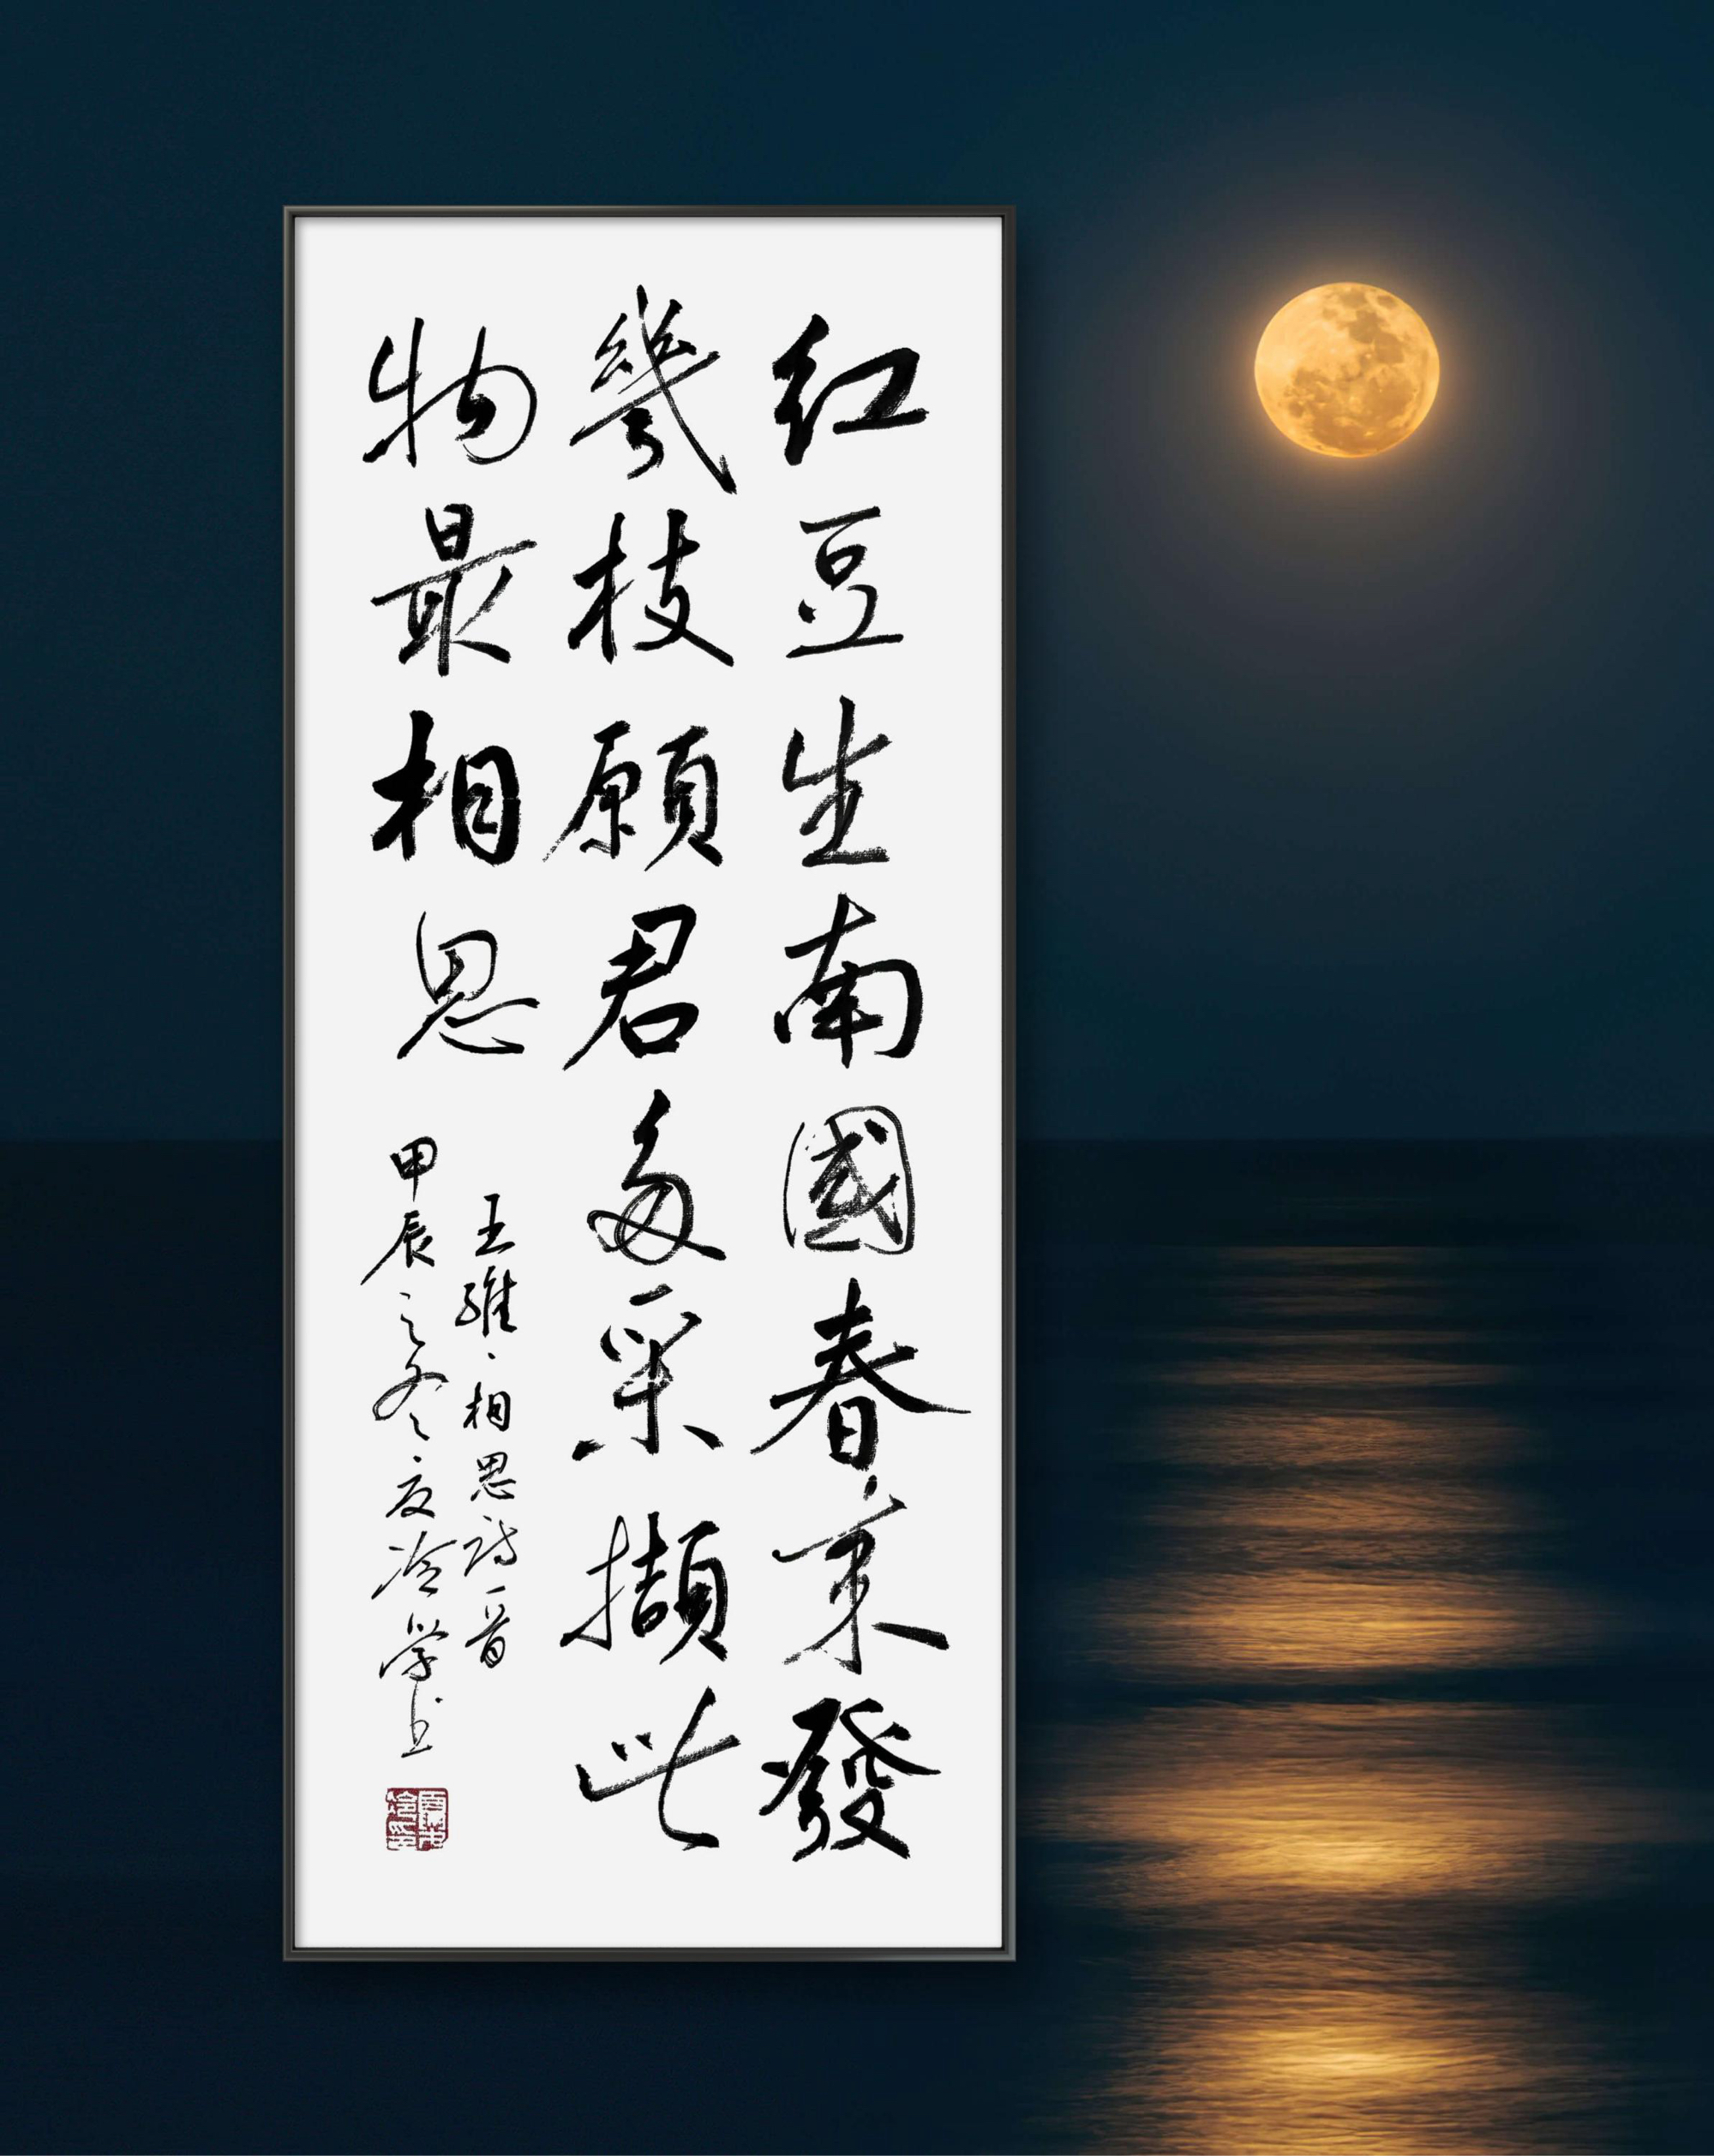 红豆生南國春来發
幾枝願君多采擷此
物最相思
王維、相思诗一首
甲辰之冬、夏冷学书